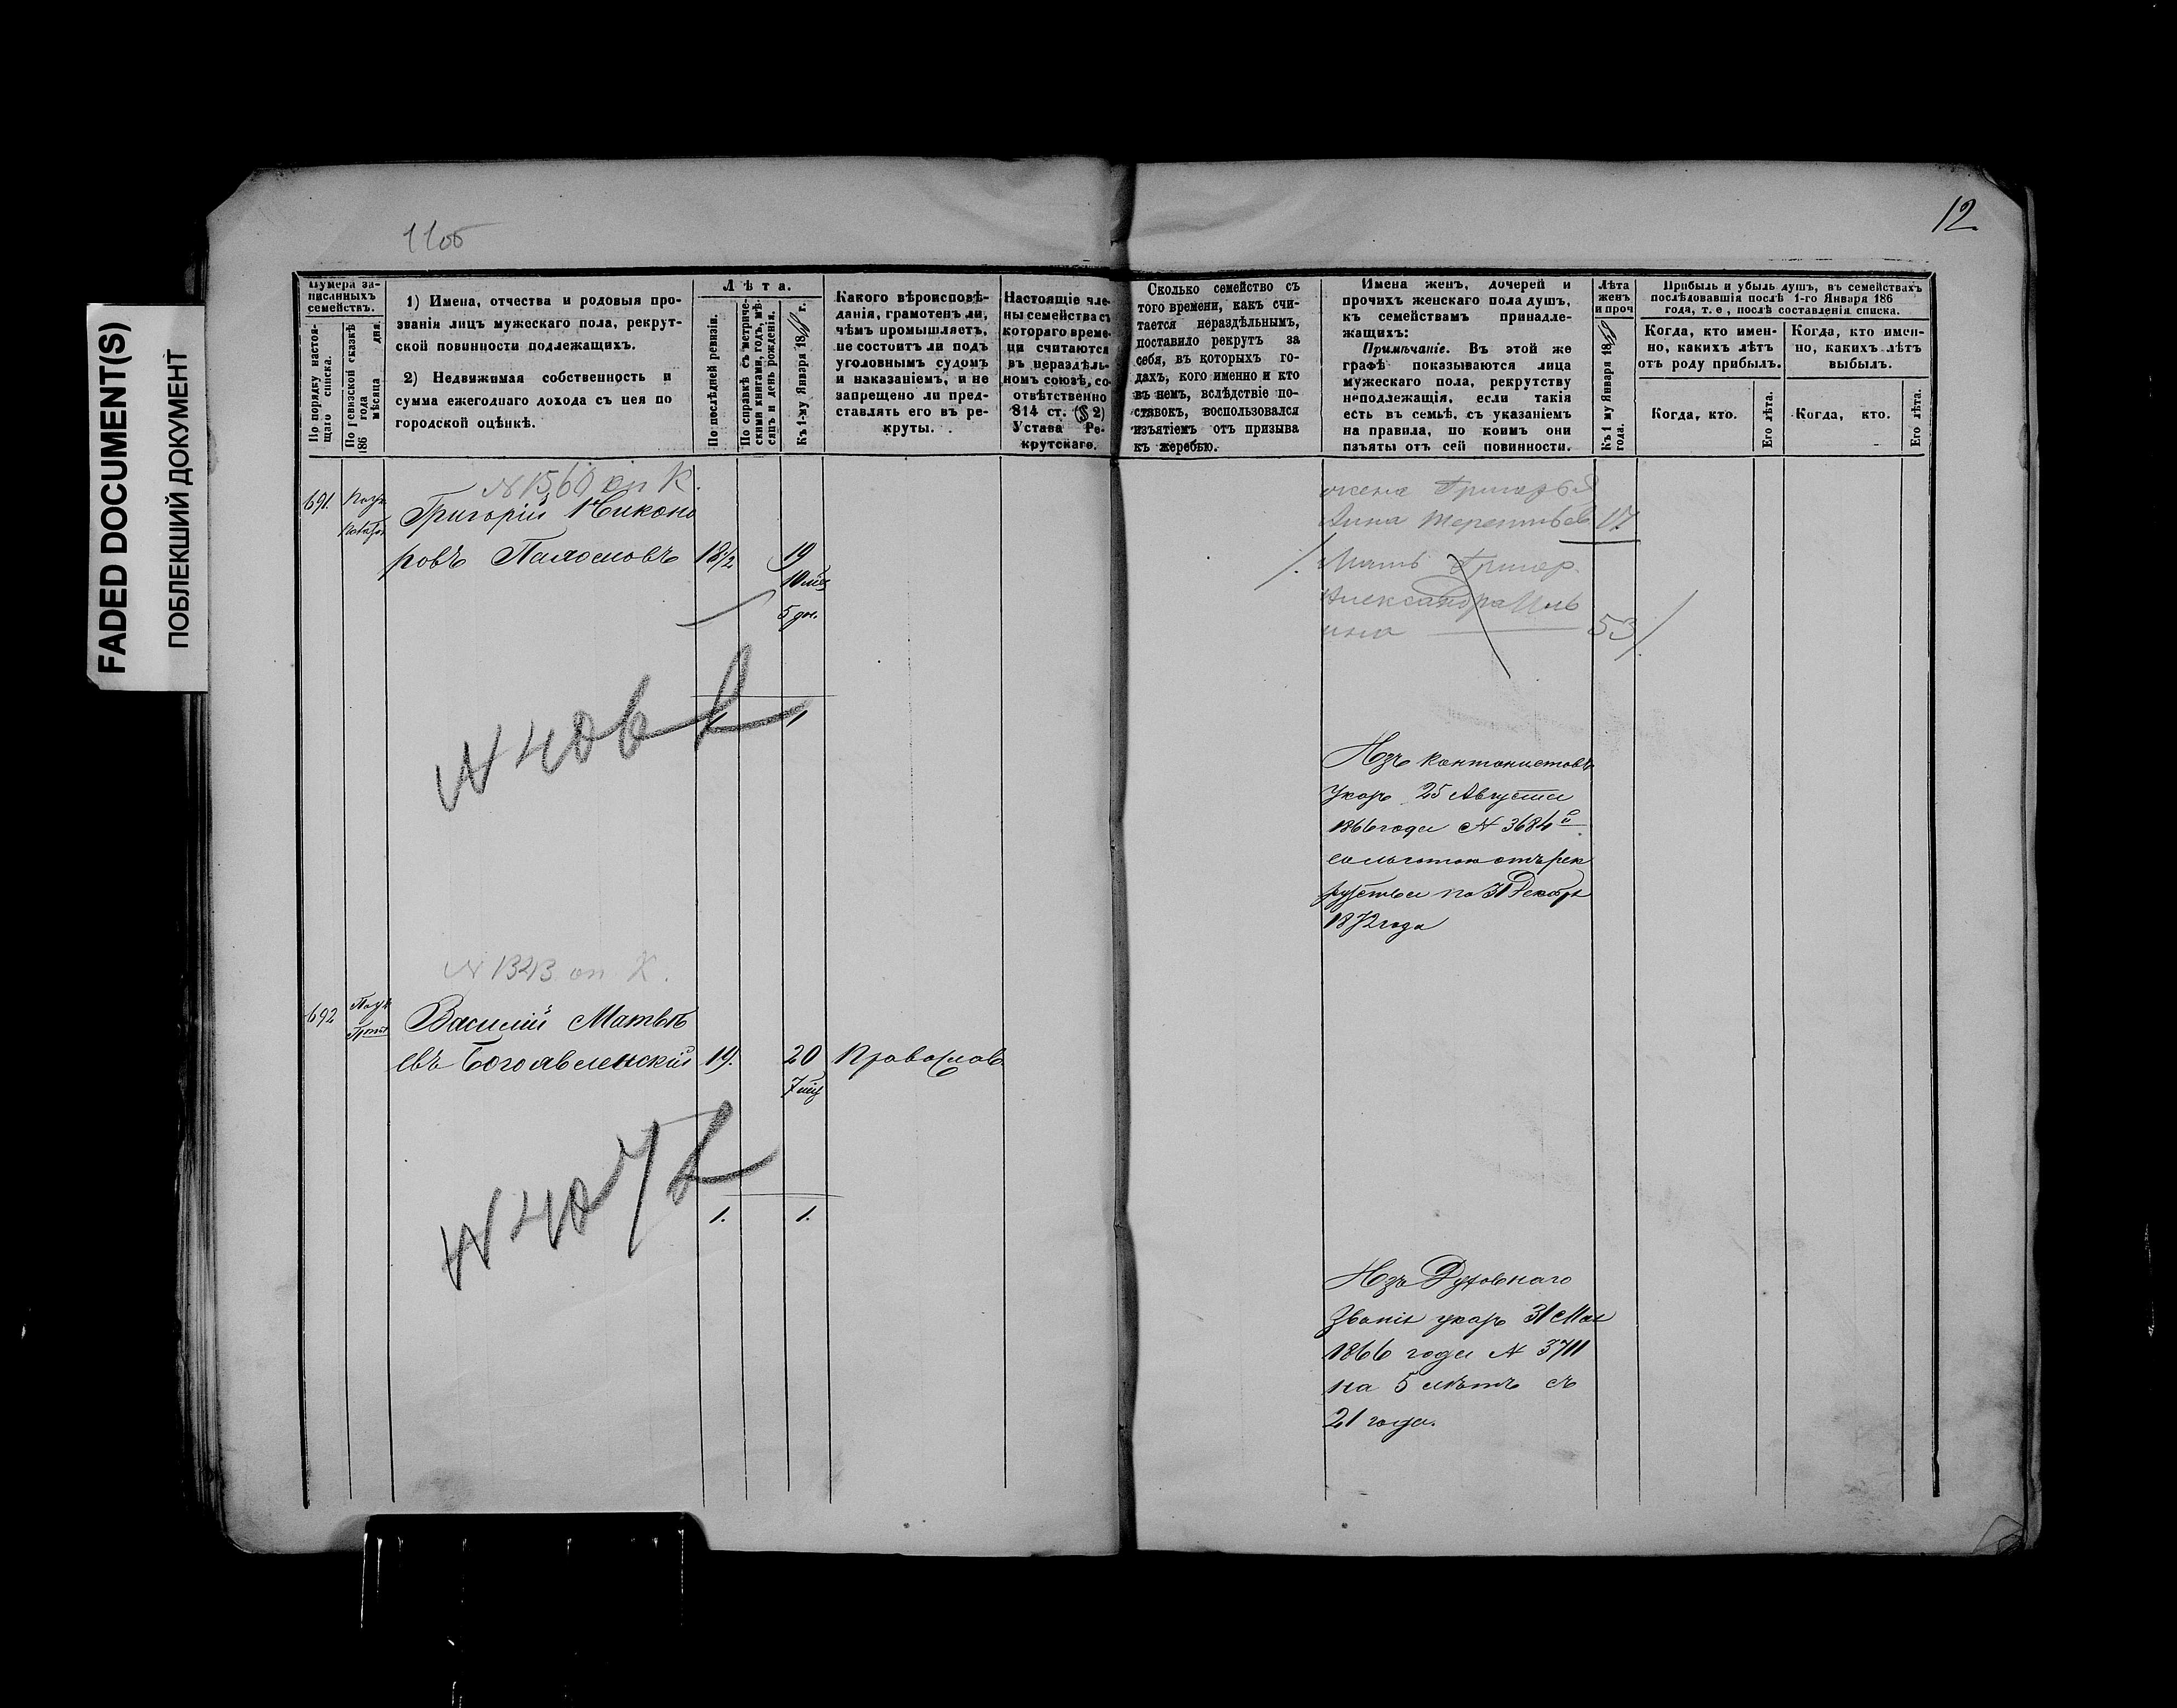 FADED DOCUMENT(S)
ПОБЛЕКШИЙ ДОКУМЕНТ
1100
12
Нумера за-
писанныхъ
семействъ.
По порядку настоя-
щаго списка.
По ревизской сказкѣ
186 года
мѣсяца дня.
1) Имена, отчества и родовыя про-
званія лицъ мужескаго пола, рекрут-
ской повинности подлежащихъ.
2) Недвижимая собственность и
сумма ежегоднаго дохода съ нея по
городской оцѣнкѣ.
Лѣта.
По послѣдней ревизіи.
По справкѣ съ метриче-
скими книгами, годъ, мѣ-
сяцъ и день рожденія.
Къ 1-му Января 18 г.
Какого вѣроисповѣ-
данія, грамотенъ ли,
чѣмъ промышляетъ,
не состоитъ ли подъ
уголовнымъ судомъ
и наказаніемъ, и не
запрещено ли пред-
ставлять его въ ре-
круты.
Настоящіе чле-
ны семейства съ
котораго време-
ни считаются
въ нераздѣль-
номъ союзѣ, со-
отвѣтственно
814 ст. (§ 2)
Устава Ре-
крутскаго.
Сколько семейство съ
того времени, какъ счи-
тается нераздѣльнымъ,
поставило рекрутъ за
себя, въ которыхъ го-
дахъ, кого именно и кто
въ немъ, вслѣдствіе по-
ставокъ, воспользовался
изъятіемъ отъ призыва
къ жеребью.
Имена женъ, дочерей и
прочихъ женскаго пола душъ,
къ семействамъ принадле-
жащихъ:
Примѣчаніе. Въ этой же
графѣ показываются лица
мужескаго пола, рекрутству
неподлежащія, если такія
есть въ семьѣ, съ указаніемъ
на правила, по коимъ они
изъяты отъ сей повинности.
Лѣта
женъ
и проч
Къ 1 му Января 18
года.
Прибыль и убыль душъ, въ семействахъ
послѣдовавшія послѣ 1-го Января 186
года, т. е, послѣ составленія списка.
Когда, кто имен-
но, какихъ лѣтъ
отъ роду прибылъ.
Когда, кто имен-
но, какихъ лѣтъ
выбылъ.
Когда, кто.
Его лѣта.
Когда, кто.
Его лѣта.
N 1560 оп К.
691.
Григорій Никано
ровъ 18½ 19
10 мѣс
5 дн.
жена Григорья
Анна Терентьев 17
Мать Григор.
Александра Иль
ина 53
N 406
1 1
Изъ кантонистовъ
указъ 25 Августа
1866 года N 3684
со льготою отъ рек
рутства по 31 Декабря
1872 года
N 1343 оп К.
692 Василій Матвѣ
евъ Богоявленскій 19. 20 Православ.
7 мѣс
N 407
1. 1.
Изъ Духовнаго
званія указъ 31 Мая
1866 года N 3711
на 5 лѣтъ съ
21 года.